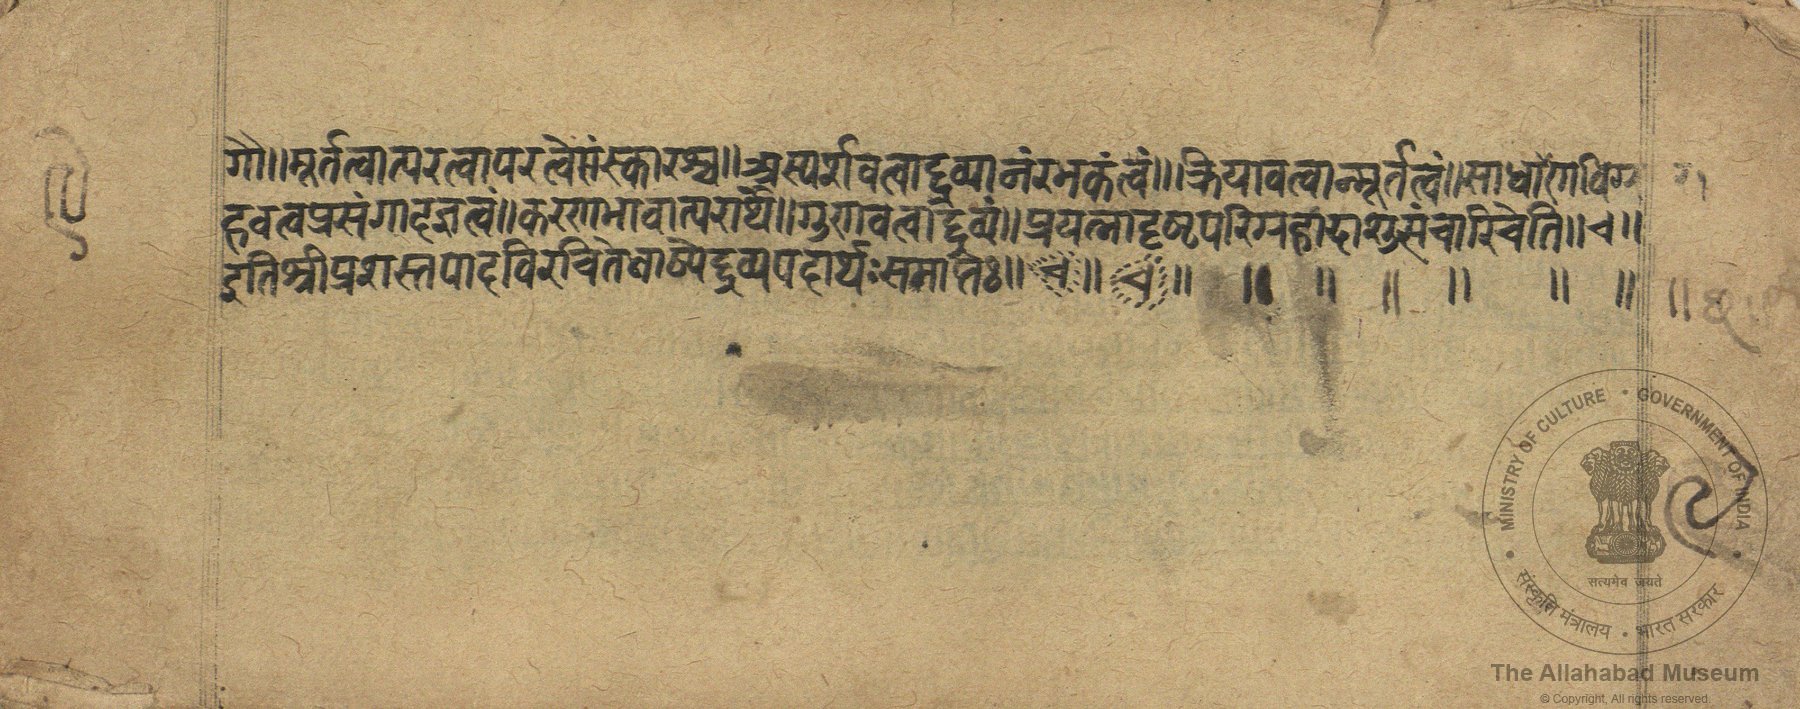 गौ॥मूर्तत्वात्परत्वापरत्वेसंस्कारश्च॥अस्पर्शवत्वाद्द्रव्यानंरभकंत्वं॥।क्रियावत्वान्मूर्तत्वं॥साधारणविग्र
हवत्वप्रसंगादज्ञत्वं॥करणभावात्परार्थं॥गुणवत्वाद्द्रव्यं॥प्रयत्नादृष्टपरिग्रहादाशुसंचारिचेति॥च॥
इतिश्रीप्रशस्तपादविरचितेभाष्येद्द्रव्यपदार्थःसमाप्तः॥च॥च॥ ॥ ॥ ॥ ॥ ॥ ॥ ॥
९
MINISTRY OF CULTURE • GOVERNMENT OF INDIA
सत्यमेव जयते
संस्कृति मंत्रालय • भारत सरकार
The Allahabad Museum
© Copyright, All rights reserved.